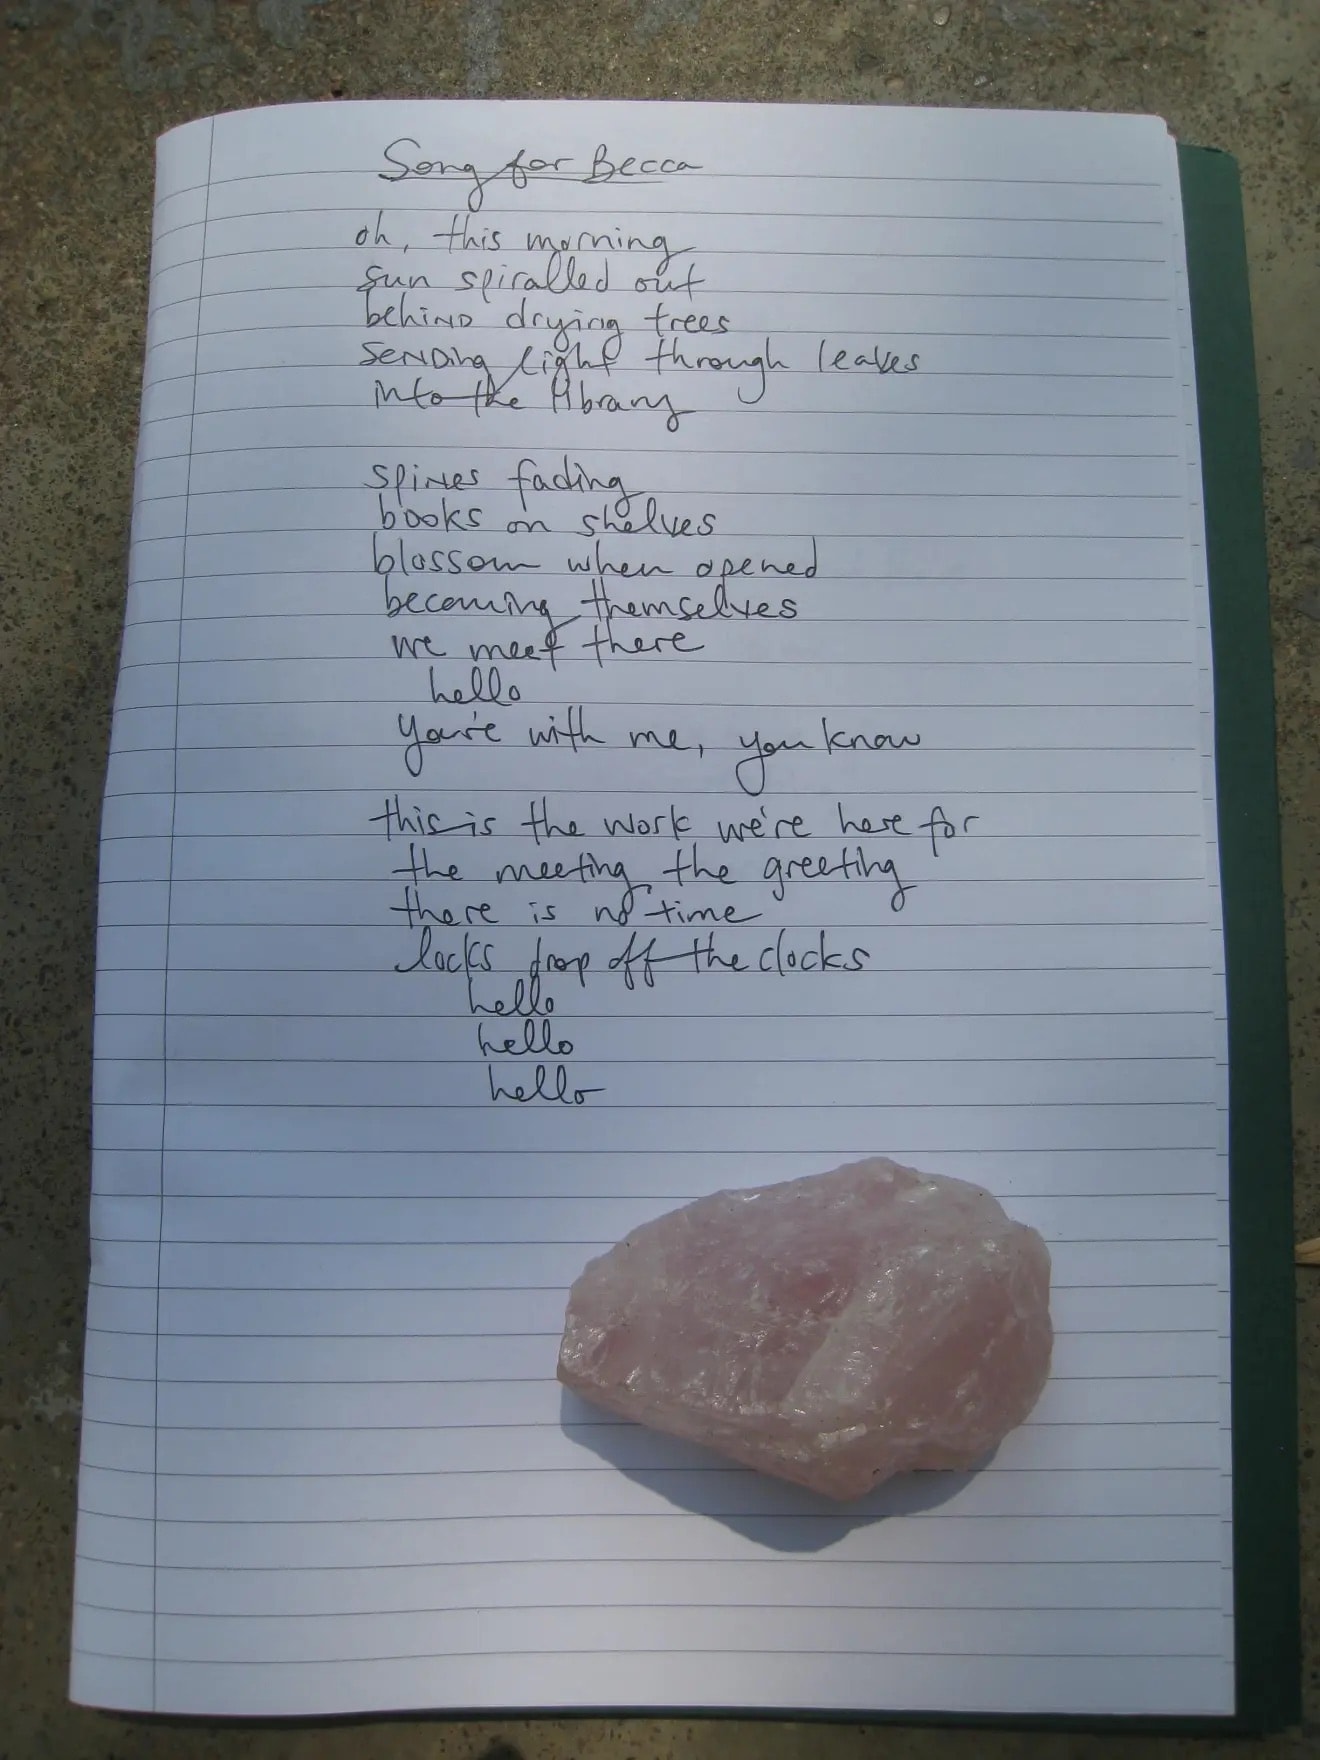 Song for Becca
oh, this morning
sun spiralled out
behind drying trees
sending light through leaves
into the library
spines fading
books on shelves
blossom when opened
becoming themselves
we meet there
hello
you're with me, you know
this is the work we're here for
the meeting the greeting
there is no time
locks drop off the clocks
hello
hello
hello